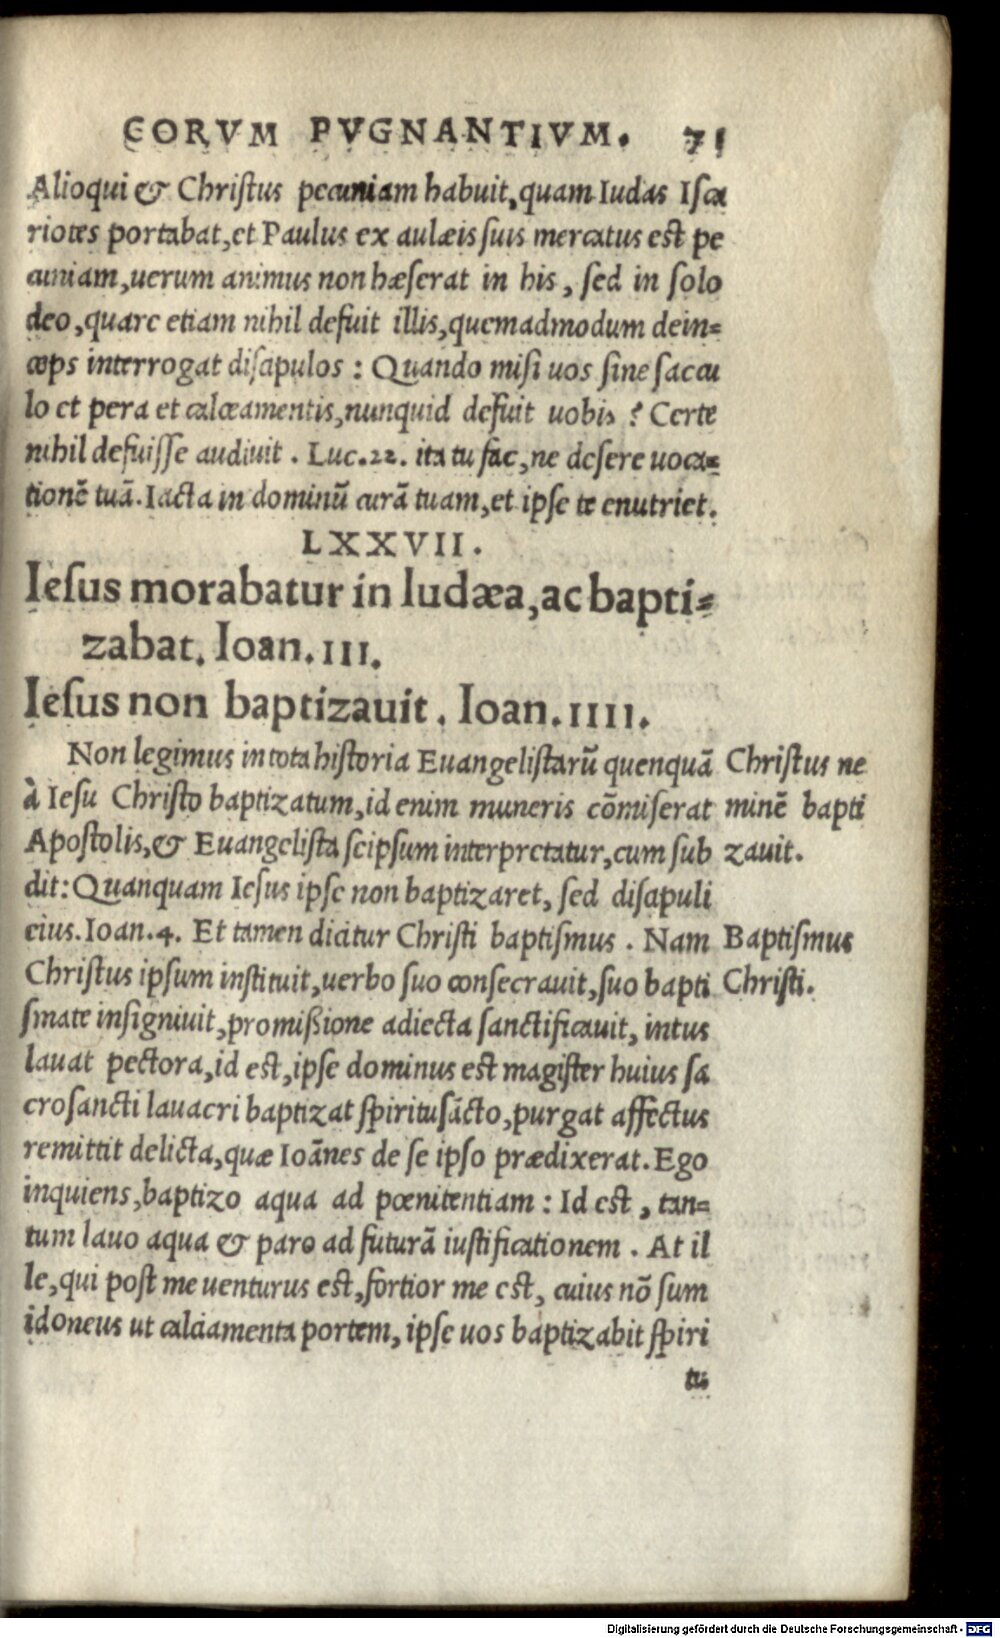 EORVM PVGNANTIVM. 71
Alioqui & Chriſtus pecuniam habuit, quam Iudas Iſca
riotes portabat, et Paulus ex aulæis ſuis mercatus est pe
cuniam, uerum animus non hæſerat in his, ſed in ſolo
deo, quare etiam nihil defuit illis, quemadmodum dein=
ceps interrogat diſcipulos : Quando miſi uos ſine ſaccu
lo et pera et calceamentis, nunquid defuit uobis ? Certe
nihil defuiſſe audiuit . Luc.22. ita tu fac, ne deſere uoca=
tionē tuā. Iacta in dominū curā tuam, et ipſe te enutriet.
LXXVII.
Ieſus morabatur in Iudæa, ac bapti=
zabat. Ioan. III.
Ieſus non baptizauit . Ioan. IIII.
Non legimus in tota hiſtoria Euangeliſtarū quenquā
à Ieſu Chriſto baptizatum, id enim muneris cōmiſerat
Apoſtolis, & Euangeliſta ſeipſum interpretatur, cum ſub
dit: Quanquam Ieſus ipſe non baptizaret, ſed diſcipuli
eius. Ioan.4. Et tamen dicitur Chriſti baptiſmus . Nam
Chriſtus ipſum inſtituit, uerbo ſuo conſecrauit, ſuo bapti
ſmate inſigniuit, promißione adiecta ſanctificauit, intus
lauat pectora, id est, ipſe dominus est magiſter huius ſa
croſancti lauacri baptizat ſpirituſācto, purgat affectus
remittit delicta, quæ Ioānes de se ipſo prædixerat. Ego
inquiens, baptizo aqua ad pœnitentiam : Id est , tan=
tum lauo aqua & paro ad futurā iuſtificationem . At il
le, qui poſt me uenturus est, fortior me est, cuius nō ſum
idoneus ut calciamenta portem, ipſe uos baptizabit ſpiri
tu
Chriſtus ne
minē bapti
zauit.
Baptiſmus
Chriſti.
Digitalisierung gefördert durch die Deutsche Forschungsgemeinschaft - DFG